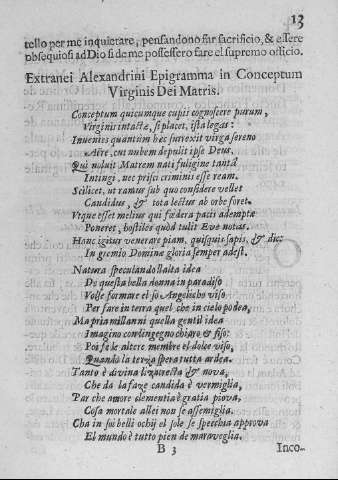 13
tello per me inquietare, pensandono far sacrificio, & essere
obsequiosi ad Dio si de me possessero fare el supremo officio.
Extranei Alexandrini Epigramma in Conceptum
Virginis Dei Matris.
Conceptum quicumque cupit cognoscere purum,
Virginis intactæ, si placet, ista legas:
Invenies quantum hec surrexit virga sereno
Aëre, cui nubem depulit ipse Deus.
Qui noluit Matrem nati fuligine tantâ
Intingi, nec prisci criminis esse ream.
Scilicet, ut ramus sub quo considere vellet
Candidus, & tota lectus ab orbe foret.
Utque esset melius qui fœdera paci ademptæ
Poneret, hostiles quòd tulit Evæ notas.
Hanc igitur venerare piam, quisquis sapis, & dic:
In gremio Dominæ gloria semper adest.
Natura speculando l'alta idea
De questa bella donna in paradiso
Volse formare el so Angelicho viso,
Per fare in terra quel che in cielo podea,
Ma pria mill anni quella gentil idea
Imagino con l'ingegno chiaro & fiso:
Poi fe le altere membre el dolce viso,
Quando la terza spera tutta ardea.
Tanto è divina li zuirecta & nova,
Che da la faze candida è vermiglia,
Par che amore clementia è gratia piova,
Cosa mortale allei non se assemiglia.
Cha in soi belli ochij el sole se specchia approva
El mundo è tutto pien de maraveglia.
B 3 Inco-